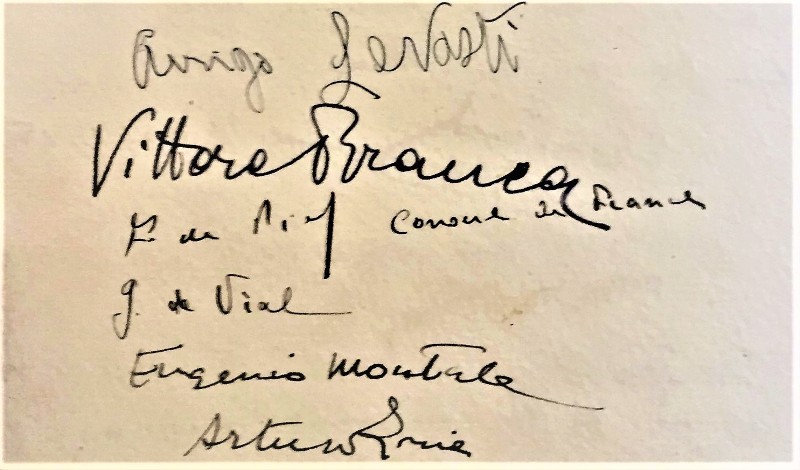 Arrigo Levasti
Vittore Branca
de Consul de France
G. de Vial
Eugenio Montale
Arturo